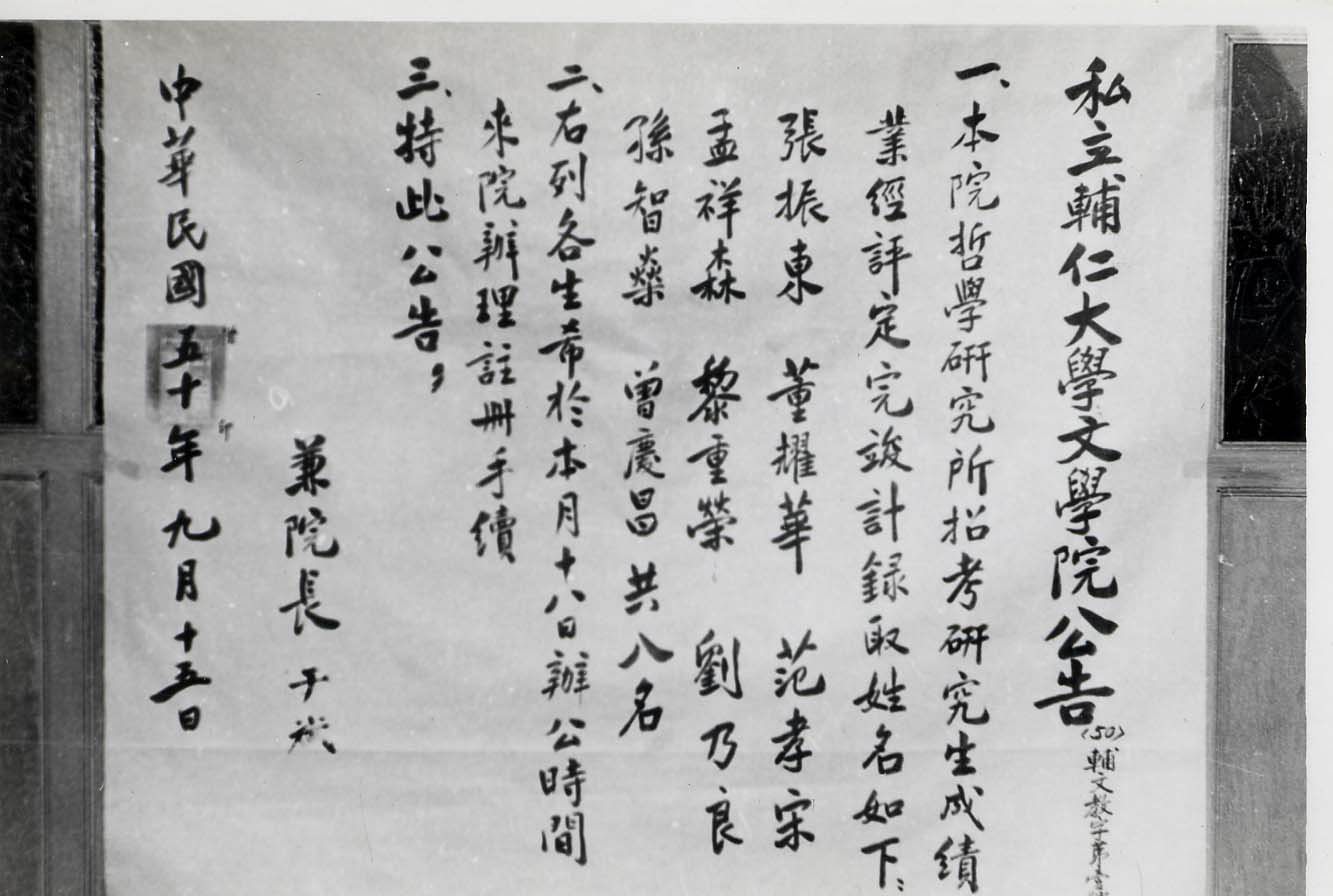 私立輔仁大學文學院公告
(50)輔文教字第壹
一、本院哲學研究所招考研究生成績
業經評定完竣計録取姓名如下：
張振東 董耀華 范孝宋
孟祥森 黎重榮 劉乃良
孫智燊 曾慶昌 共八名
二、右列各生希於本月十八日辦公時間
來院辦理註冊手續
三、特此公告，
兼院長 于斌
中華民國五十年九月十五日